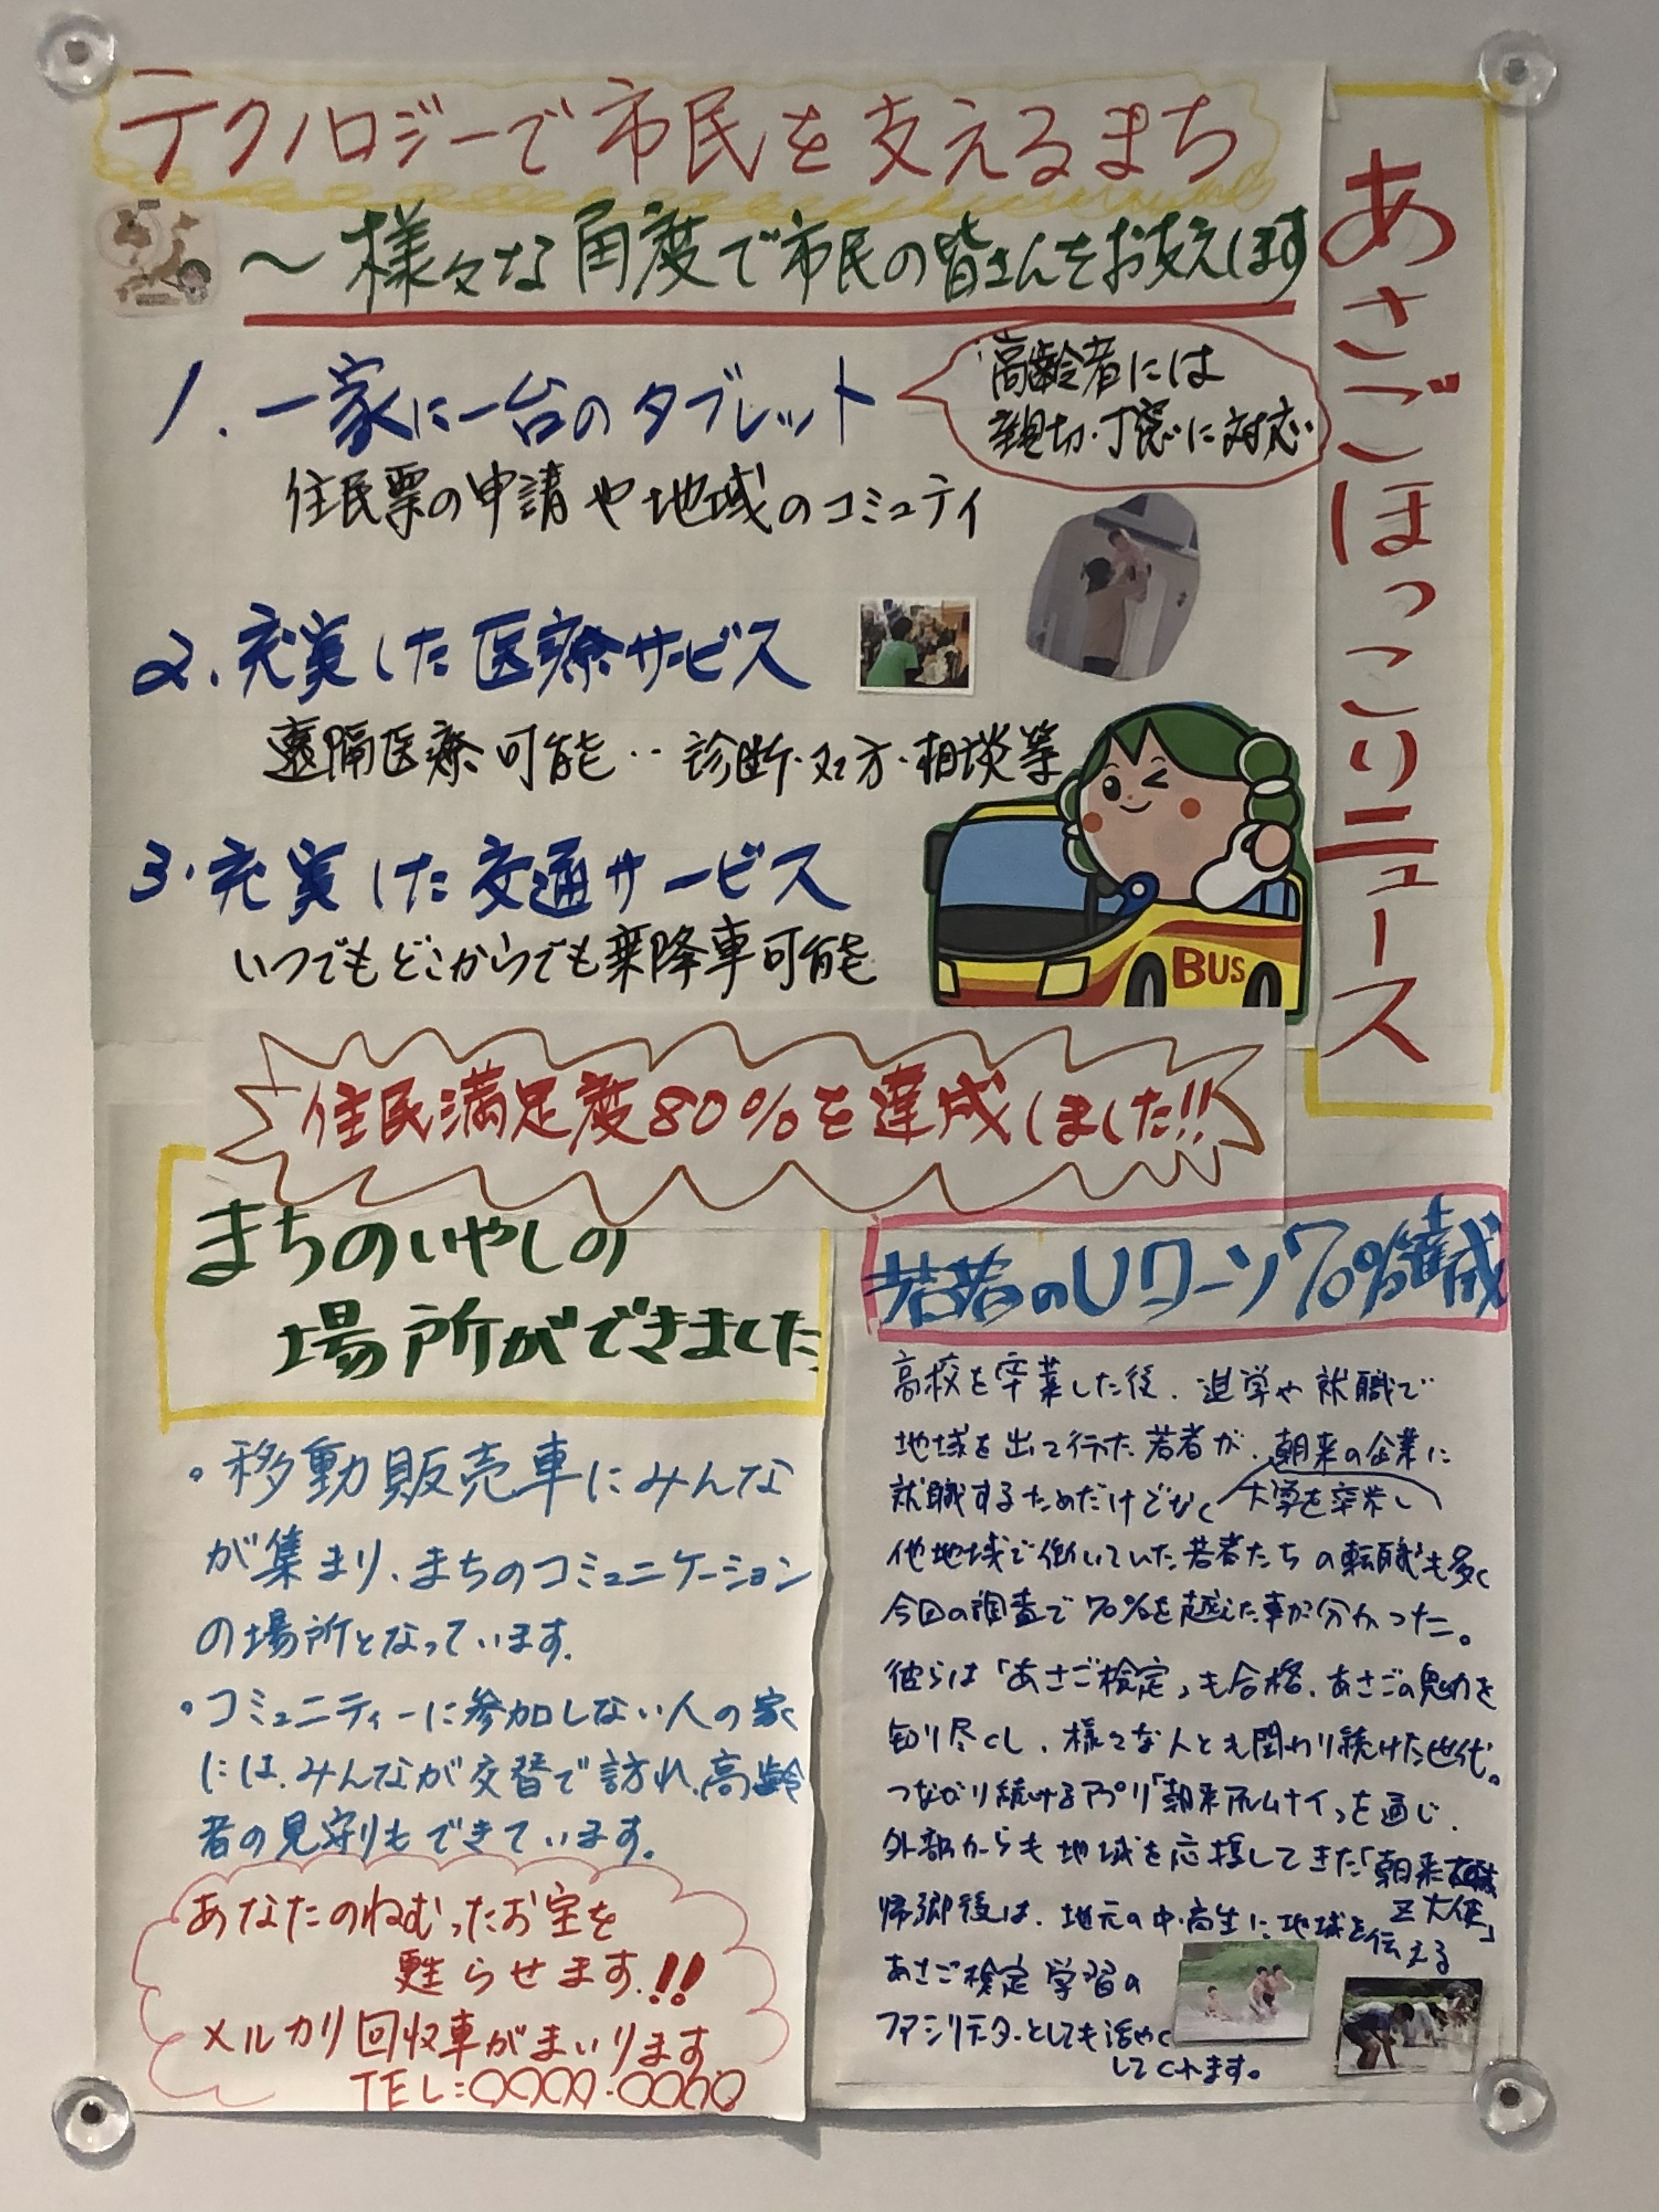 あさごほっこりニュース
テクノロジーで市民を支えるまち
～様々な角度で市民の皆さんをお支えします
1. 一家に一台のタブレット
高齢者には
親切・丁寧に対応
住民票の申請や地域のコミュティ
2. 充実した医療サービス
遠隔医療可能‥診断・処方・相談等
3. 充実した交通サービス
いつでもどこからでも乗降車可能
BUS
住民満足度80%を達成しました!!
まちのいやしの
場所ができました
・移動販売車にみんな
が集まり、まちのコミュニケーション
の場所となっています。
・コミュニティーに参加しない人の家
には、みんなが交替で訪れ、高齢
者の見守りもできています。
あなたのねむったお宝を
甦らせます!!
メルカリ回収車がまいります。
TEL:〇〇〇〇-〇〇〇〇
若者のUターン70%達成
高校を卒業した後、進学や就職で
地域を出て行った若者が、朝来の企業に
就職するためだけでなく 大学を卒業し
他地域で働いていた若者たちの転職も多く
今回の調査で70%を越えた事が分かった。
彼らは「あさご検定」も合格、あさごの魅力を
知り尽くし、様々な人とも関わり続けた世代。
つながり続けるアプリ「朝来」を通じ、
外部からも地域を応援してきた「朝来
Z大使」
帰郷後は、地元の中・高生に地域を伝える
あさご検定学習の
ファシリテターとしても活やく
してくれます。